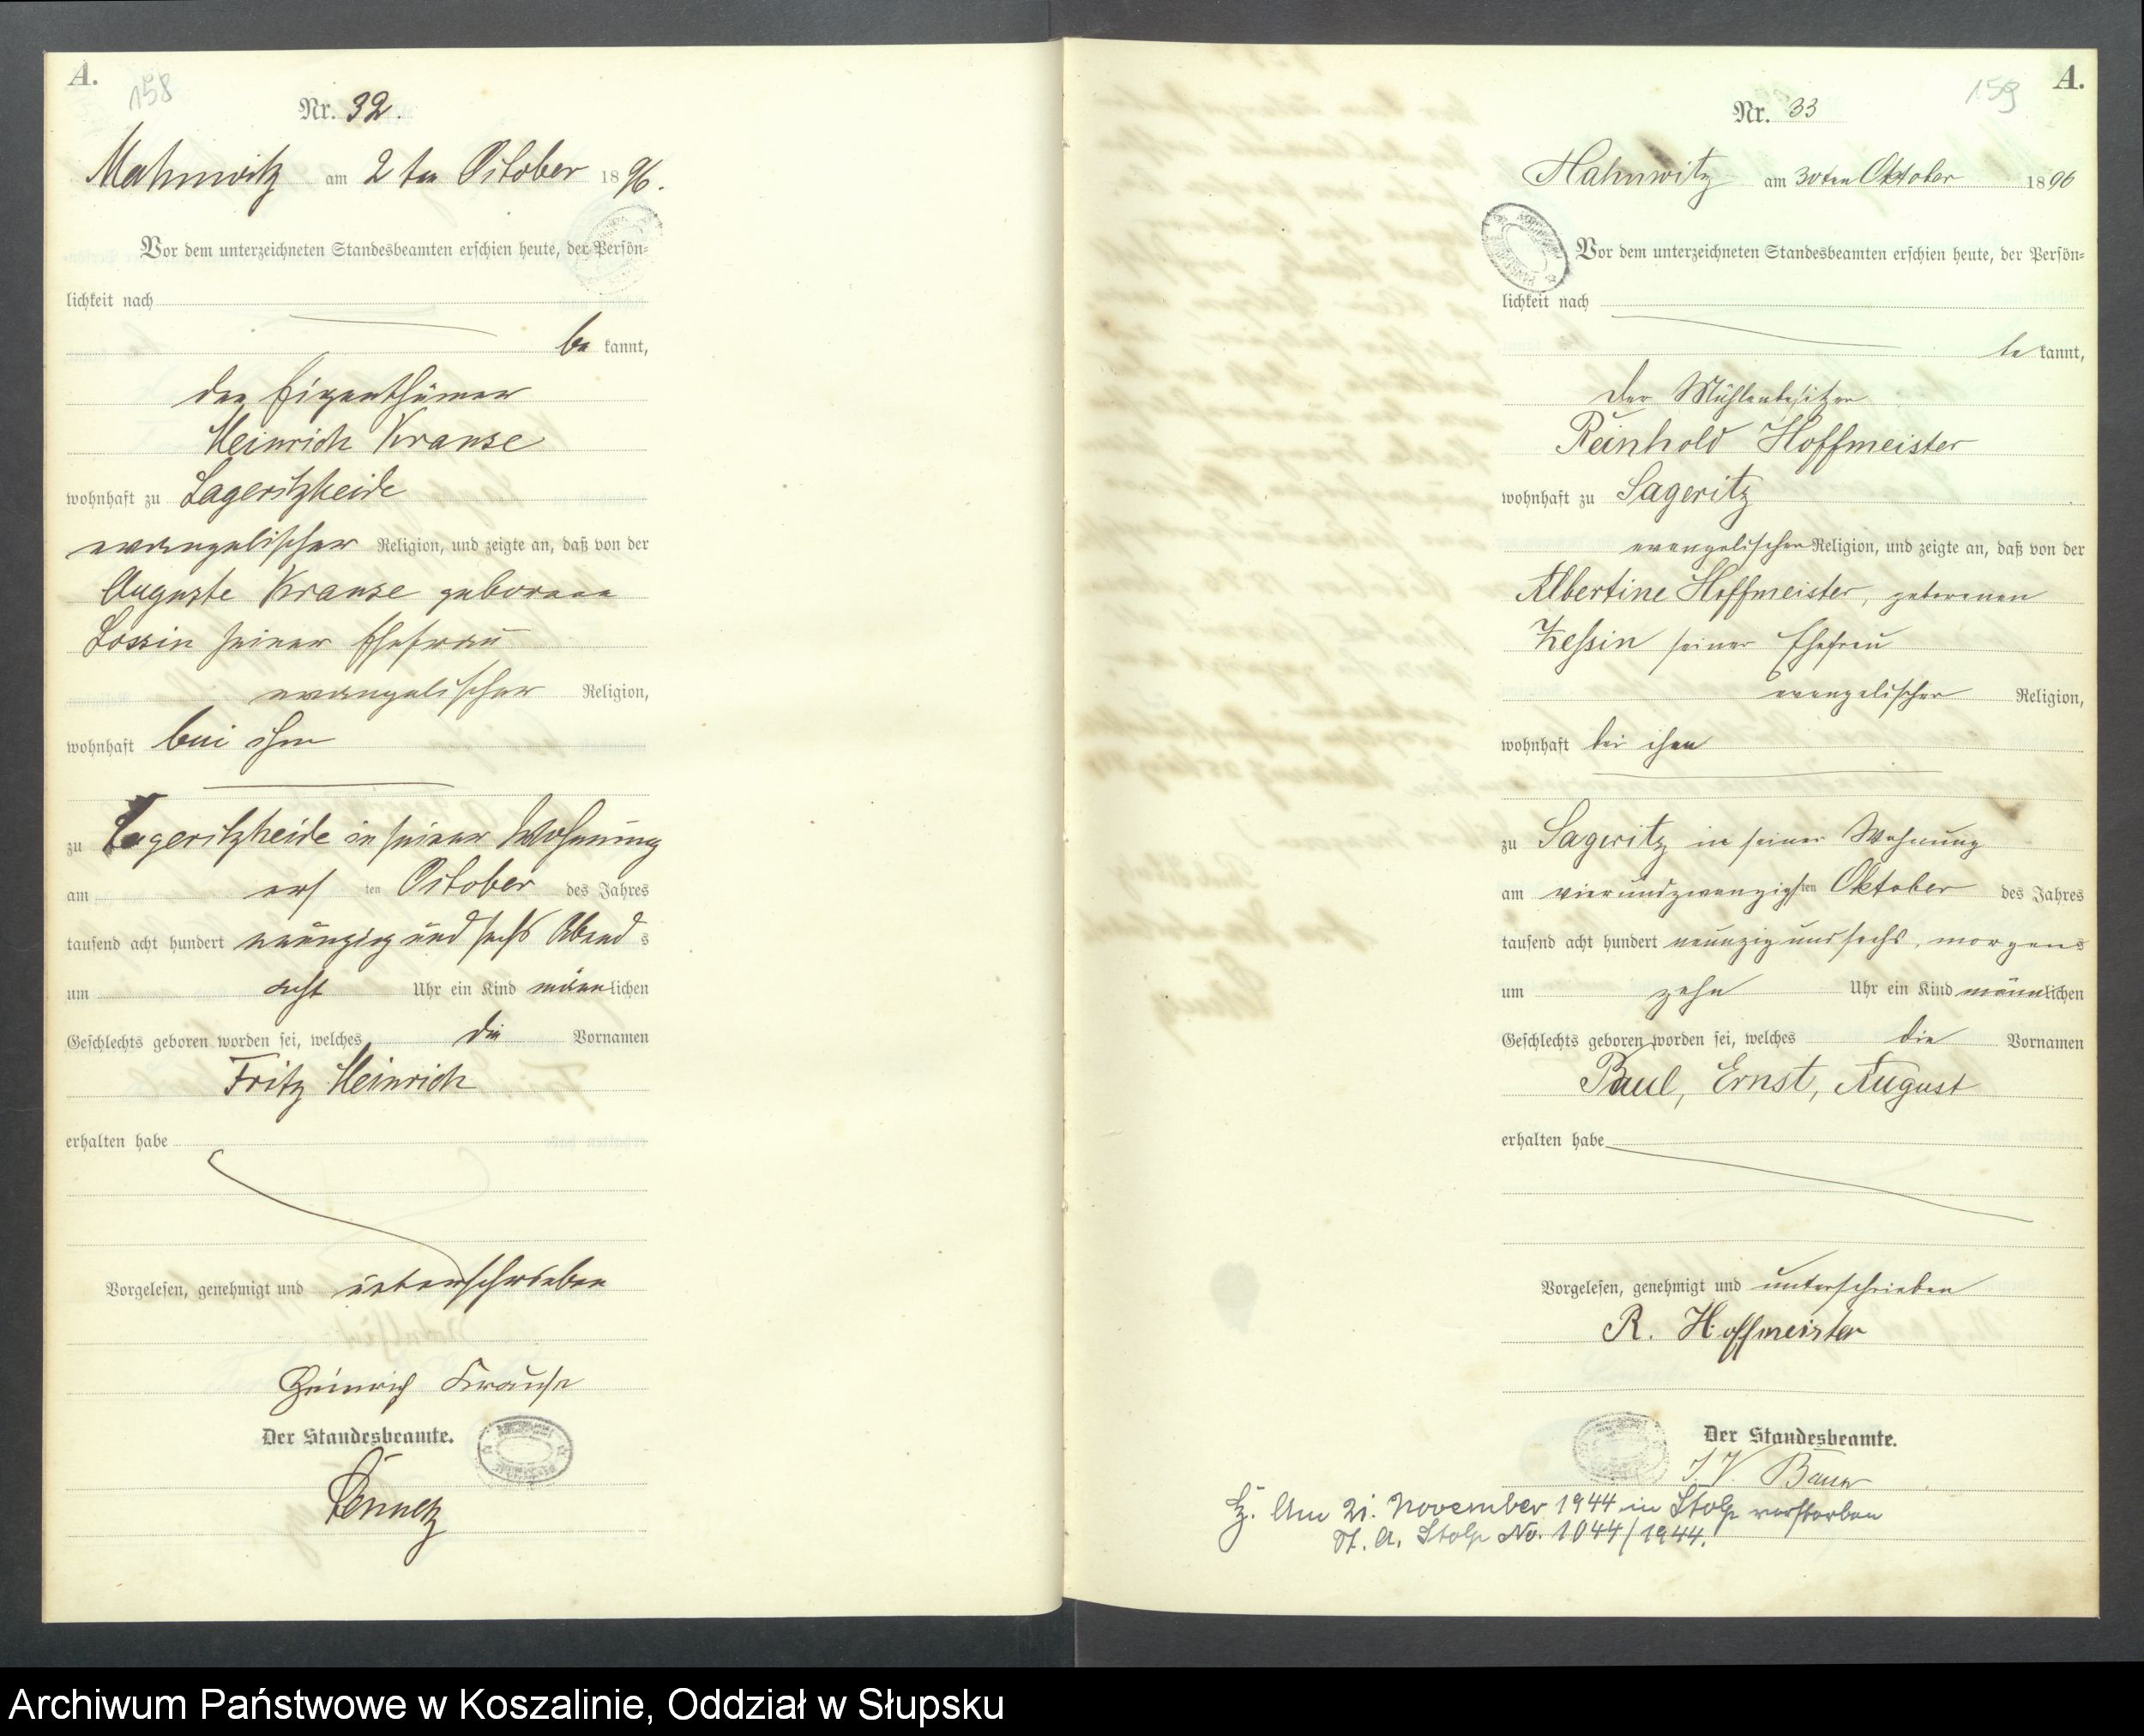 A.
158
Nr. 32.
Mahnwitz am 2ten October 1896.
Vor dem unterzeichneten Standesbeamten erschien heute, der Persön-
lichkeit nach
be kannt,
der Eigenthümer
Heinrich Krause
wohnhaft zu Lageritzheide
evangelischer Religion, und zeigte an, daß von der
Auguste Krause geborene
Lossin seiner Ehefrau
evangelischer Religion,
wohnhaft bei ihm
zu Lageritzheide in seiner Wohnung
am ersten October des Jahres
tausend acht hundert neunzig und sechs Abends
um acht Uhr ein Kind männlichen
Geschlechts geboren worden sei, welches die Vornamen
Fritz Heinrich
erhalten habe
Vorgelesen, genehmigt und unterschrieben
Heinrich Krause
Der Standesbeamte.
A.
159
Nr. 33
Mahnwitz am 30ten Oktober 1896
Vor dem unterzeichneten Standesbeamten erschien heute, der Persön-
lichkeit nach
be kannt,
der Mühlenbesitzer
Reinhold Hoffmeister
wohnhaft zu Sageritz
evangelischer Religion, und zeigte an, daß von der
Albertine Hoffmeister, geborenen
seiner Ehefrau
evangelischer Religion,
wohnhaft bei ihm
zu Sageritz in seiner Wohnung
am vierundzwanzigsten Oktober des Jahres
tausend acht hundert neunzig und sechs, morgens
um zehn Uhr ein Kind männlichen
Geschlechts geboren worden sei, welches die Vornamen
Paul, Ernst, August
erhalten habe
Vorgelesen, genehmigt und unterschrieben
R. Hoffmeister
Der Standesbeamte.
J. V. Bauer
Am 21. November 1944 in Stolp verstorben
St. A. Stolp No. 1044/1944.
Archiwum Państwowe w Koszalinie, Oddział w Słupsku